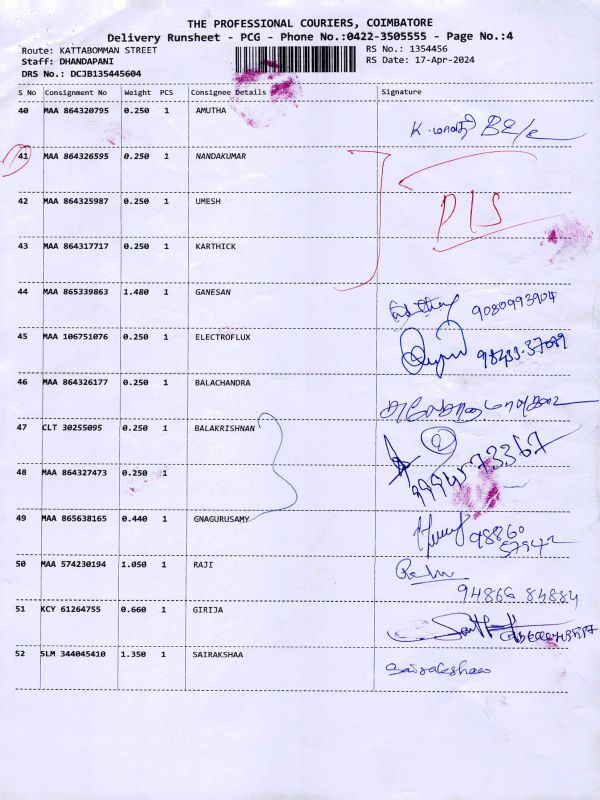 THE PROFESSIONAL COURIERS, COIMBATORE
Delivery Runsheet - PCG - Phone No.:0422-3505555 - Page No.:4
Route: KATTABOMMAN STREET
RS No.: 1354456
Staff: DHANDAPANI
RS Date: 17-Apr-2024
DRS No.: DCJB135445604
S No Consignment No Weight PCS Consignee Details Signature
40 MAA 864320795 0.250 1 AMUTHA
41 MAA 864326595 0.250 1 NANDAKUMAR
42 MAA 864325987 0.250 1 UMESH
43 MAA 864317717 0.250 1 KARTHICK
44 MAA 865339863 1.480 1 GANESAN 9080993904
45 MAA 106751076 0.250 1 ELECTROFLUX
46 MAA 864326177 0.250 1 BALACHANDRA
47 CLT 30255095 0.250 1 BALAKRISHNAN
48 MAA 864327473 0.250 1
49 MAA 865638165 0.440 1 GNAGURUSAMY 98860
57942
50 MAA 574230194 1.050 1 RAJI
94866 84884
51 KCY 61264755 0.660 1 GIRIJA
52 SLM 344045410 1.350 1 SAIRAKSHAA Sairakshaa